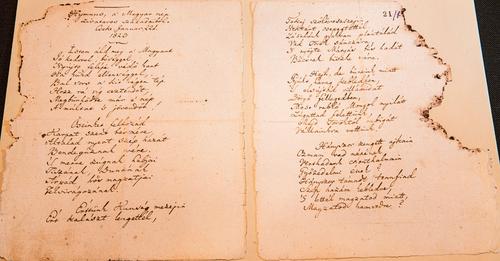 Hymnus, a' Magyar nép
zivataros századaiból.
Cseke Januar. 22d.
1823
O Isten áld meg a' Magyart
Jó kedvvel, bőséggel,
Nyújts feléje védő kart
Ha küzd ellenséggel;
Bal sors a' kit régen tép,
Hozz rá víg esztendőt,
Megbűnhődte már e' nép
A' multat 's jövendőt.
Őseinket felhozád
Kárpát szent bérczére,
Általad nyert szép hazát
Bendegúznak vére.
'S merre zúgnak habjai
Tiszának, Dunának
Árpád hős magzatjai
Felvirágozának.
Értünk Kunság mezejin
Ért kalászt lengettél,
Tokaj szőlővesszein
Nektárt csepegtettél.
Zászlónk gyakran plántálád
Vad Török sánczára,
'S nyögte Mátyás bús hadát
Bécsnek büszke vára.
Hajh, de bűneink miatt
Gyúlt harag kebledben,
'S elsújtád villámidat
Dörgő fellegedben,
Most rabló Mongol nyilát
Zúgattad felettünk,
Majd Töröktől rabigát
Vállainkra vettünk.
Hányszor zengett ajkain
Ozman vad népének
Vert hadunk csonthalmain
Győzedelmi ének!
Hányszor támadt tenfiad
Szép hazám kebledre,
'S lettél magzatod miatt
Magzatod hamvvedre?